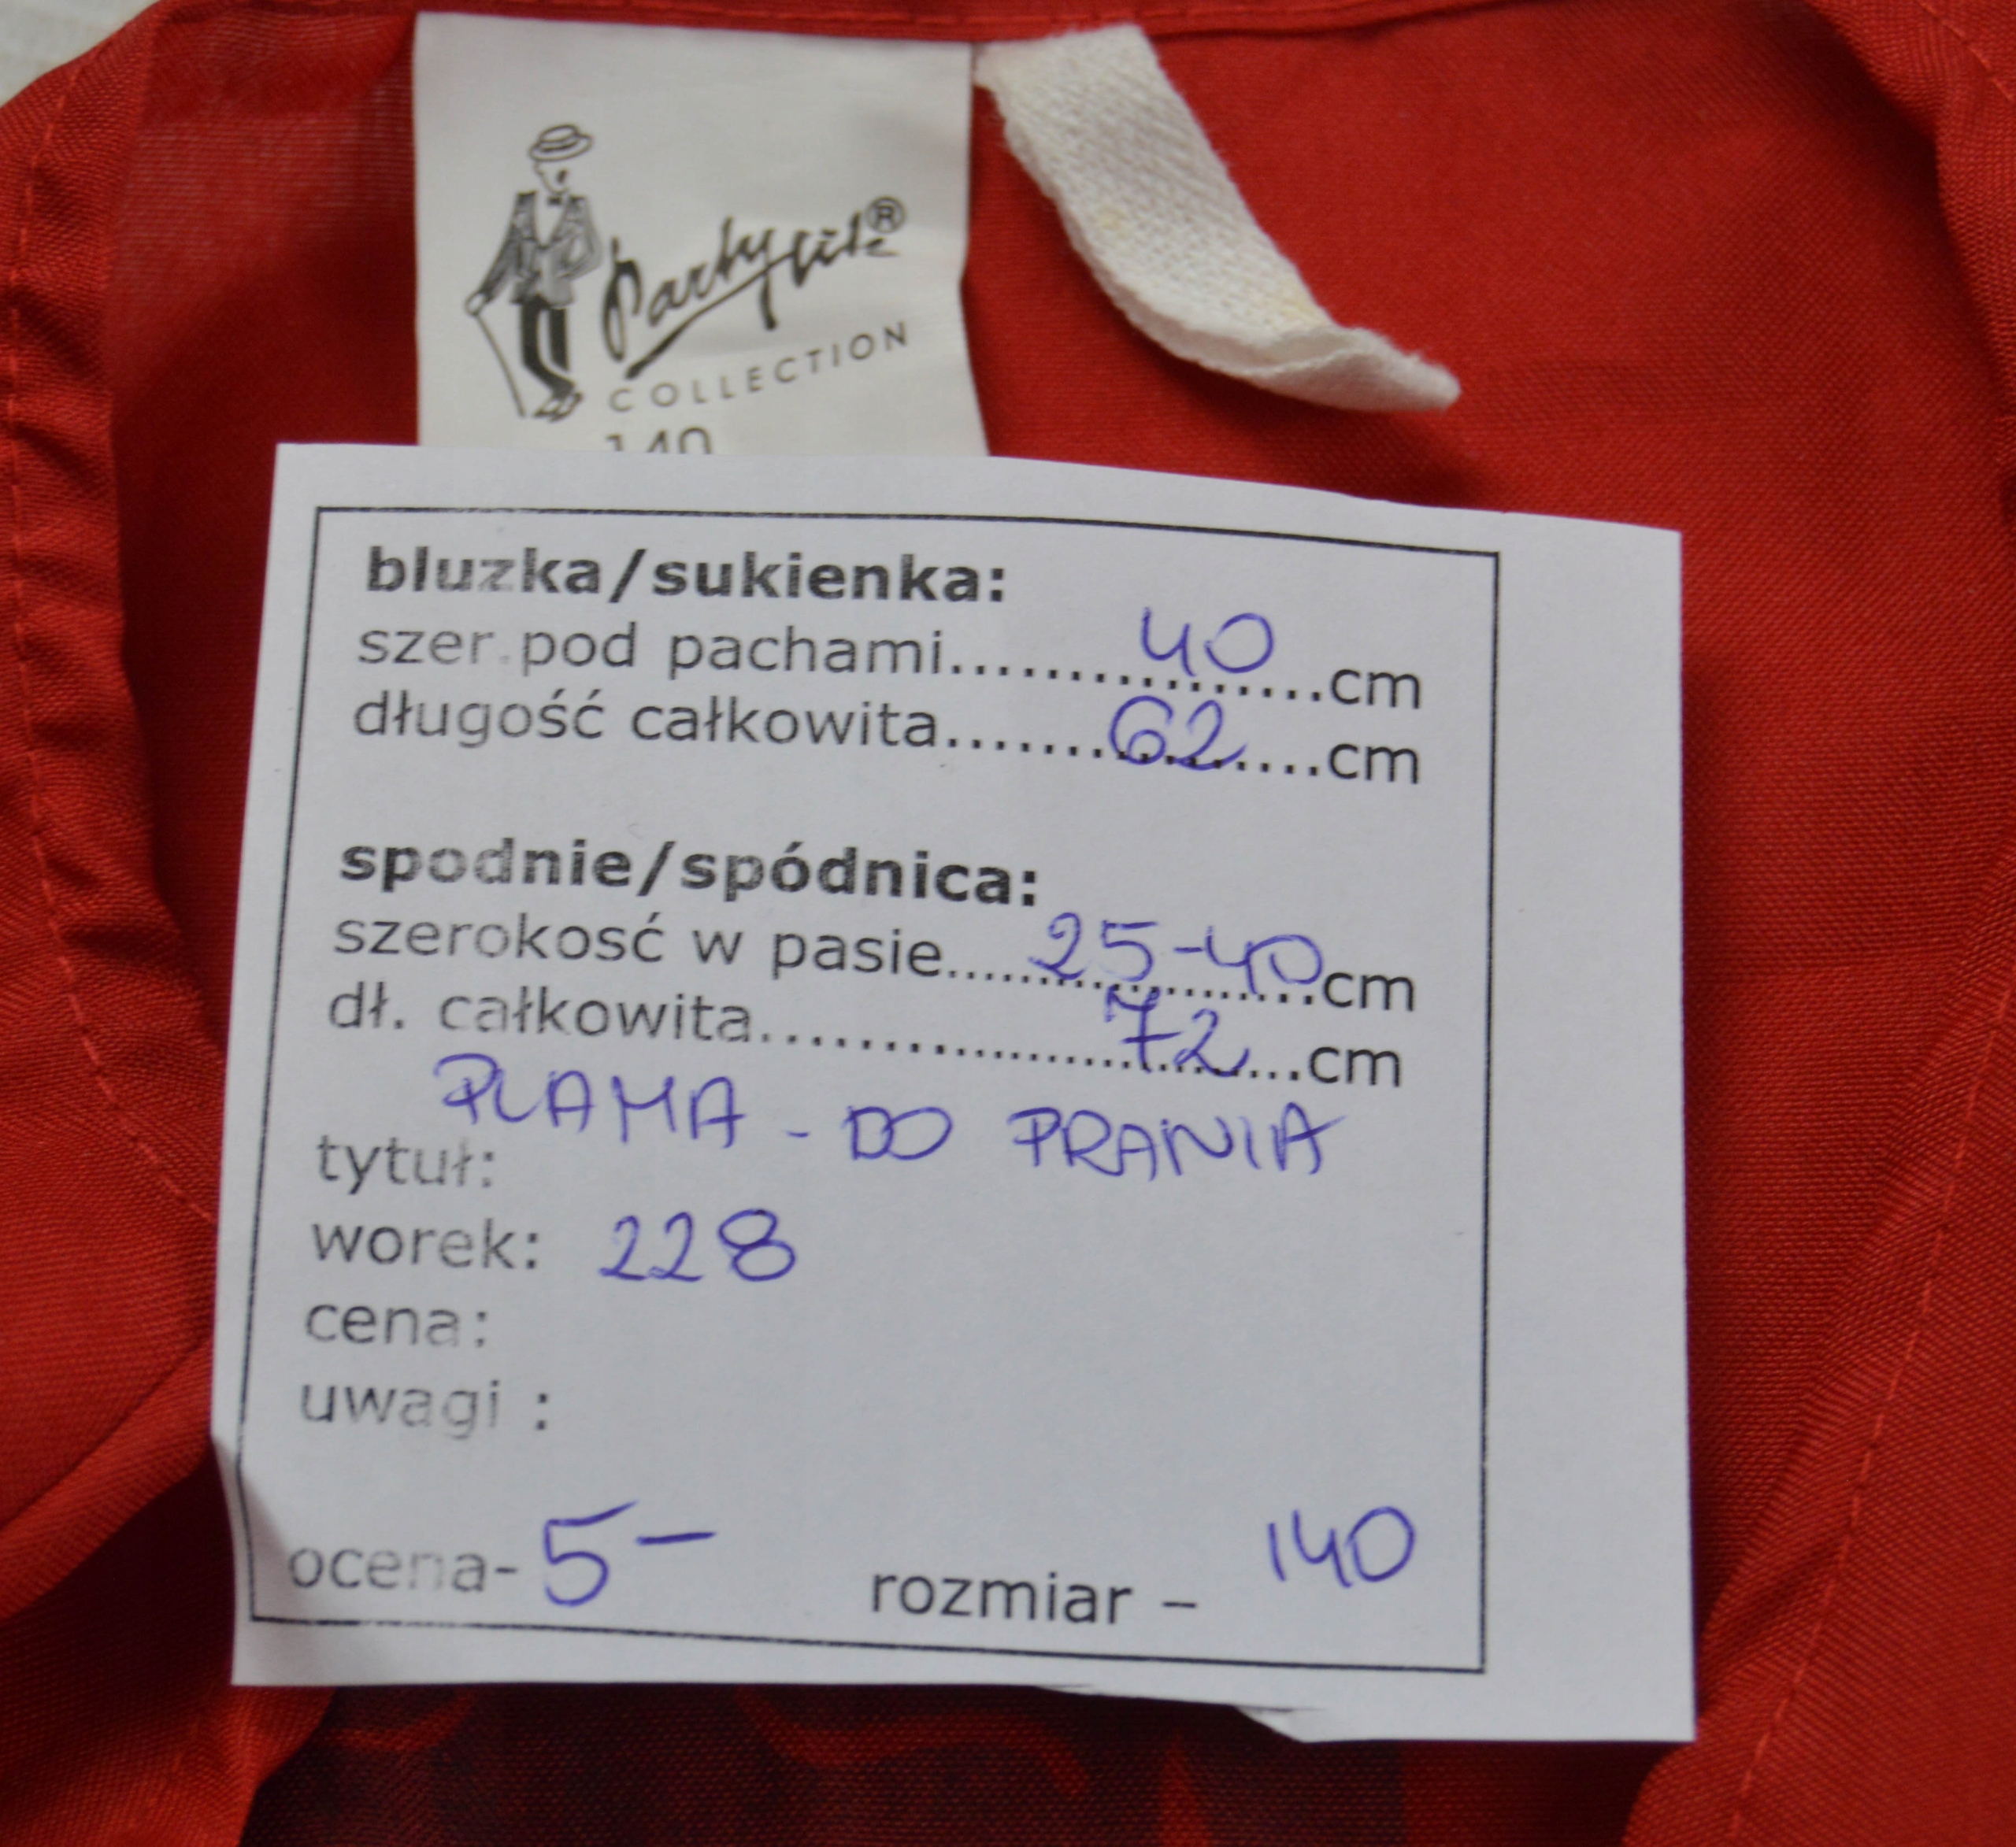 Partylite®
COLLECTION
140
bluzka/sukienka:
szer.pod pachami................40...cm
długość całkowita........62......cm
spodnie/spódnica:
szerokosć w pasie......25-40cm
dł. całkowita....................72....cm
PLAMA - DO PRANIA
tytuł:
worek: 228
cena:
uwagi :
ocena- 5- rozmiar – 140